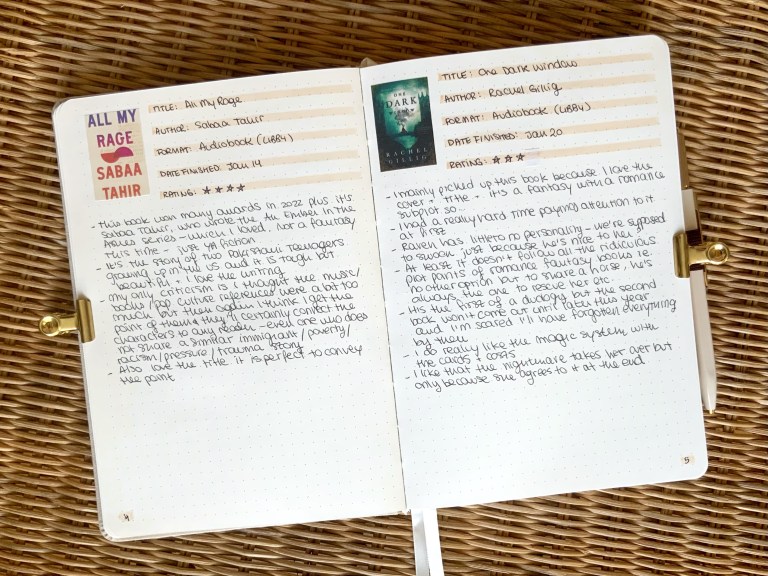 ALL MY
RAGE
SABAA
TAHIR
TITLE: All My Rage
AUTHOR: Sabaa Tahir
FORMAT: Audiobook (LIBBY)
DATE FINISHED: Jan 14
RATING: ★★★★
- this book won many awards in 2022 plus it's
Sabaa Tahir, who wrote the An Ember in the
Ashes series - which I loved. Not a fantasy
this time - just YA fiction
- It's the story of two Pakistani Teenagers
growing up in the US and it is tough but
beautiful + I love the writing
- My only criticism is I thought the music/
books/pop culture references were a bit too
much, but then again I think I get the
point of them & they'll certainly connect the
characters to any reader - even one who does
not share a similar immigrant/poverty/
racism/pressure/trauma story
- Also love the title. it is perfect to convey
the point
4
ONE
DARK
WINDOW
RACHEL
GILLIG
TITLE: One Dark Window
AUTHOR: Rachel Gillig
FORMAT: Audiobook (LIBBY)
DATE FINISHED: Jan 20
RATING: ★★★
- I mainly picked up this book because I love the
cover + title + it's a fantasy with a romance
subplot so...
- I had a really hard time paying attention to it
at first
- Raven has little to no personality - we're supposed
to swoon just because he's nice to her
- At least it doesn't follow all the ridiculous
plot points of romance fantasy books i.e.
no other option but to share a horse, he's
always the one to rescue her etc.
- It's the first of a duology but the second
book won't come out until later this year
and I'm scared I'll have forgotten everything
by then
- I do really like the magic system with
the cards + costs
- I like that the nightmare takes her over but
only because she agrees to it at the end
5